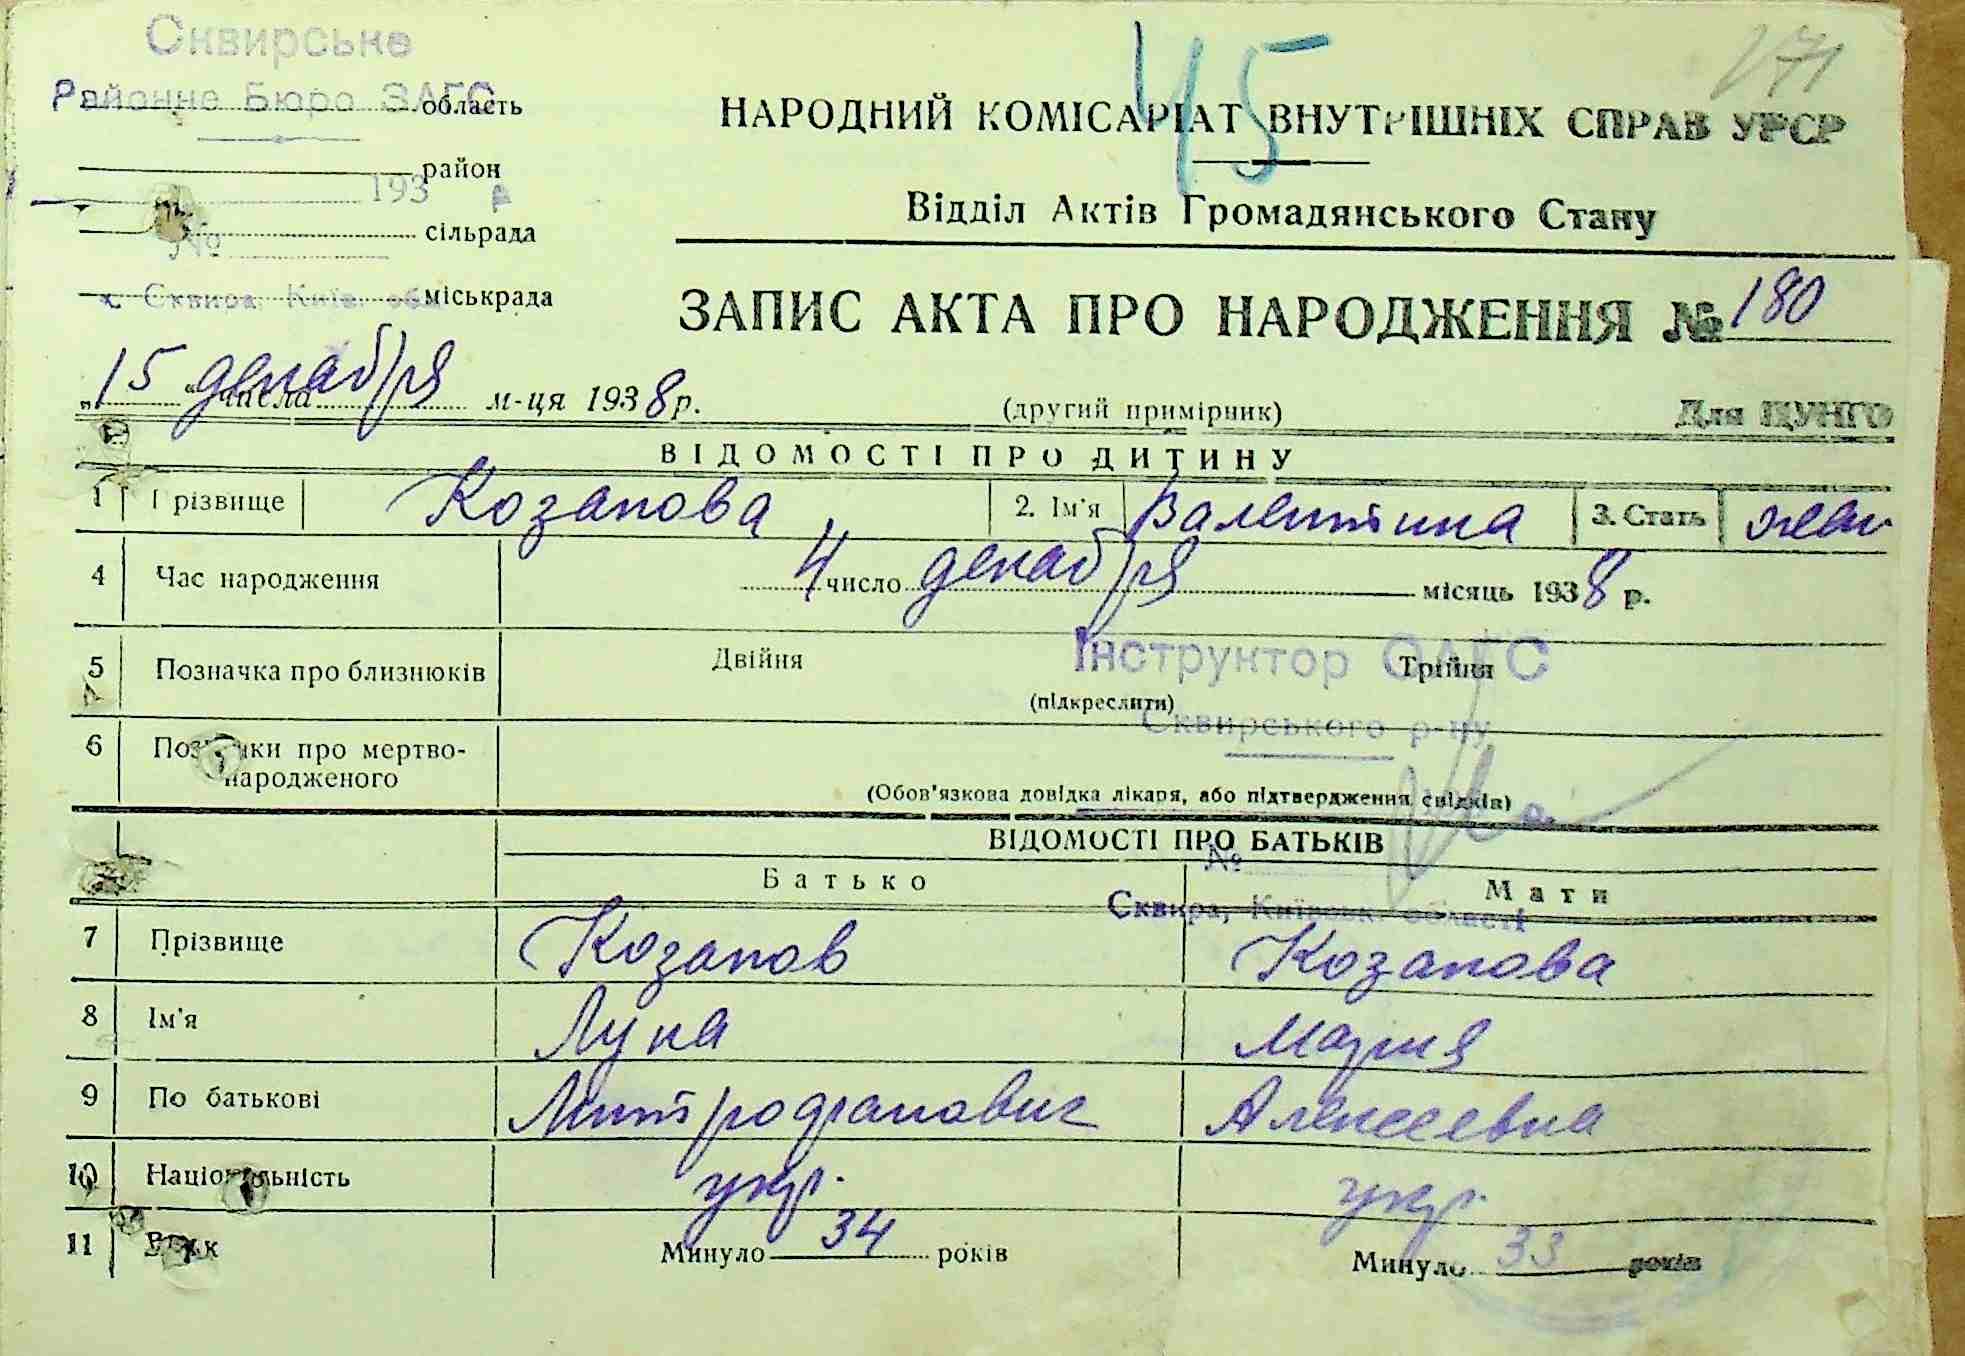 Сквирське
Районне Бюро ЗАГС
область
район
193 р
сільрада
№
м. Сквира, Київ. обл.
міськрада
45
171
НАРОДНИЙ КОМІСАРІАТ ВНУТРІШНІХ СПРАВ УРСР
Відділ Актів Громадянського Стану
ЗАПИС АКТА ПРО НАРОДЖЕННЯ № 180
„15“ числа декабря м-ця 1938 р.
(другий примірник)
Для ЦУНГО
ВІДОМОСТІ ПРО ДИТИНУ
1 Прізвище Козапова 2. Ім'я Валентина 3. Стать жен
4 Час народження 4 число декабря місяць 1938 р.
5 Позначка про близнюків Двійня Трійня
(підкреслити)
Інструктор ОАГС
Сквирського р-ну
6 Позначки про мертво-
народженого
(Обов'язкова довідка лікаря, або підтвердження свідків)
ВІДОМОСТІ ПРО БАТЬКІВ
№
Батько Мати
Сквира, Київськ. області
7 Прізвище Козапов Козапова
8 Ім'я Лука Мария
9 По батькові Митрофанович Алексеевна
10 Національність укр. укр.
11 Вік Минуло 34 років Минуло 33 років